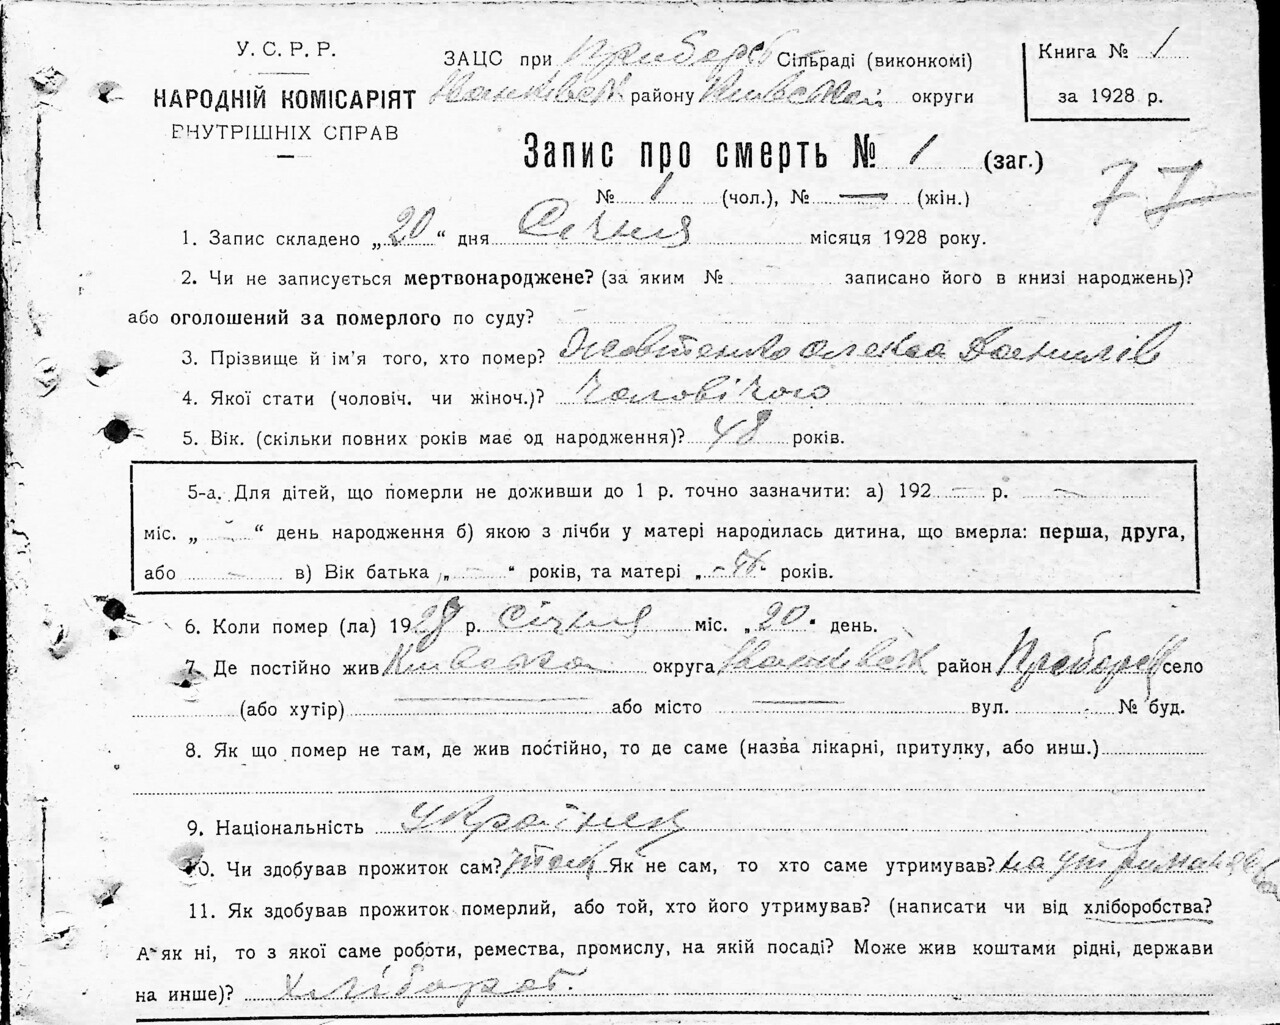 У. С. Р. Р.
НАРОДНІЙ КОМІСАРІЯТ
ВНУТРІШНІХ СПРАВ
ЗАЦС при Приборс Сільраді (виконкомі)
Іванківськ району Київської округи
Книга № 1
за 1928 р.
Запис про смерть № 1 (заг.)
№ 1 (чол.), № — (жін.)
77
1. Запис складено „20“ дня Січня місяця 1928 року.
2. Чи не записується мертвонароджене? (за яким № записано його в книзі народжень)?
або оголошений за померлого по суду?
3. Прізвище й ім’я того, хто помер? Жовтенко Олекса Данилів
4. Якої стати (чоловіч. чи жіноч.)? Чоловічого
5. Вік. (скільки повних років має од народження)? 48 років.
5-а. Для дітей, що померли не доживши до 1 р. точно зазначити: а) 192 — р. —
міс. „ — “ день народження б) якою з лічби у матері народилась дитина, що вмерла: перша, друга,
або — в) Вік батька „ — “ років, та матері „ “ років.
6. Коли помер (ла) 1928 р. Січня міс. „20“ день.
7. Де постійно жив Київська округа Іванківськ район село
(або хутір) — або місто — вул. № буд.
8. Як що помер не там, де жив постійно, то де саме (назва лікарні, притулку, або инш.)
9. Національність Українец
10. Чи здобував прожиток сам? так Як не сам, то хто саме утримував? на
11. Як здобував прожиток померлий, або той, хто його утримував? (написати чи від хліборобства?
А як ні, то з якої саме роботи, ремества, промислу, на якій посаді? Може жив коштами рідні, держави
на инше)? Хлібороб.